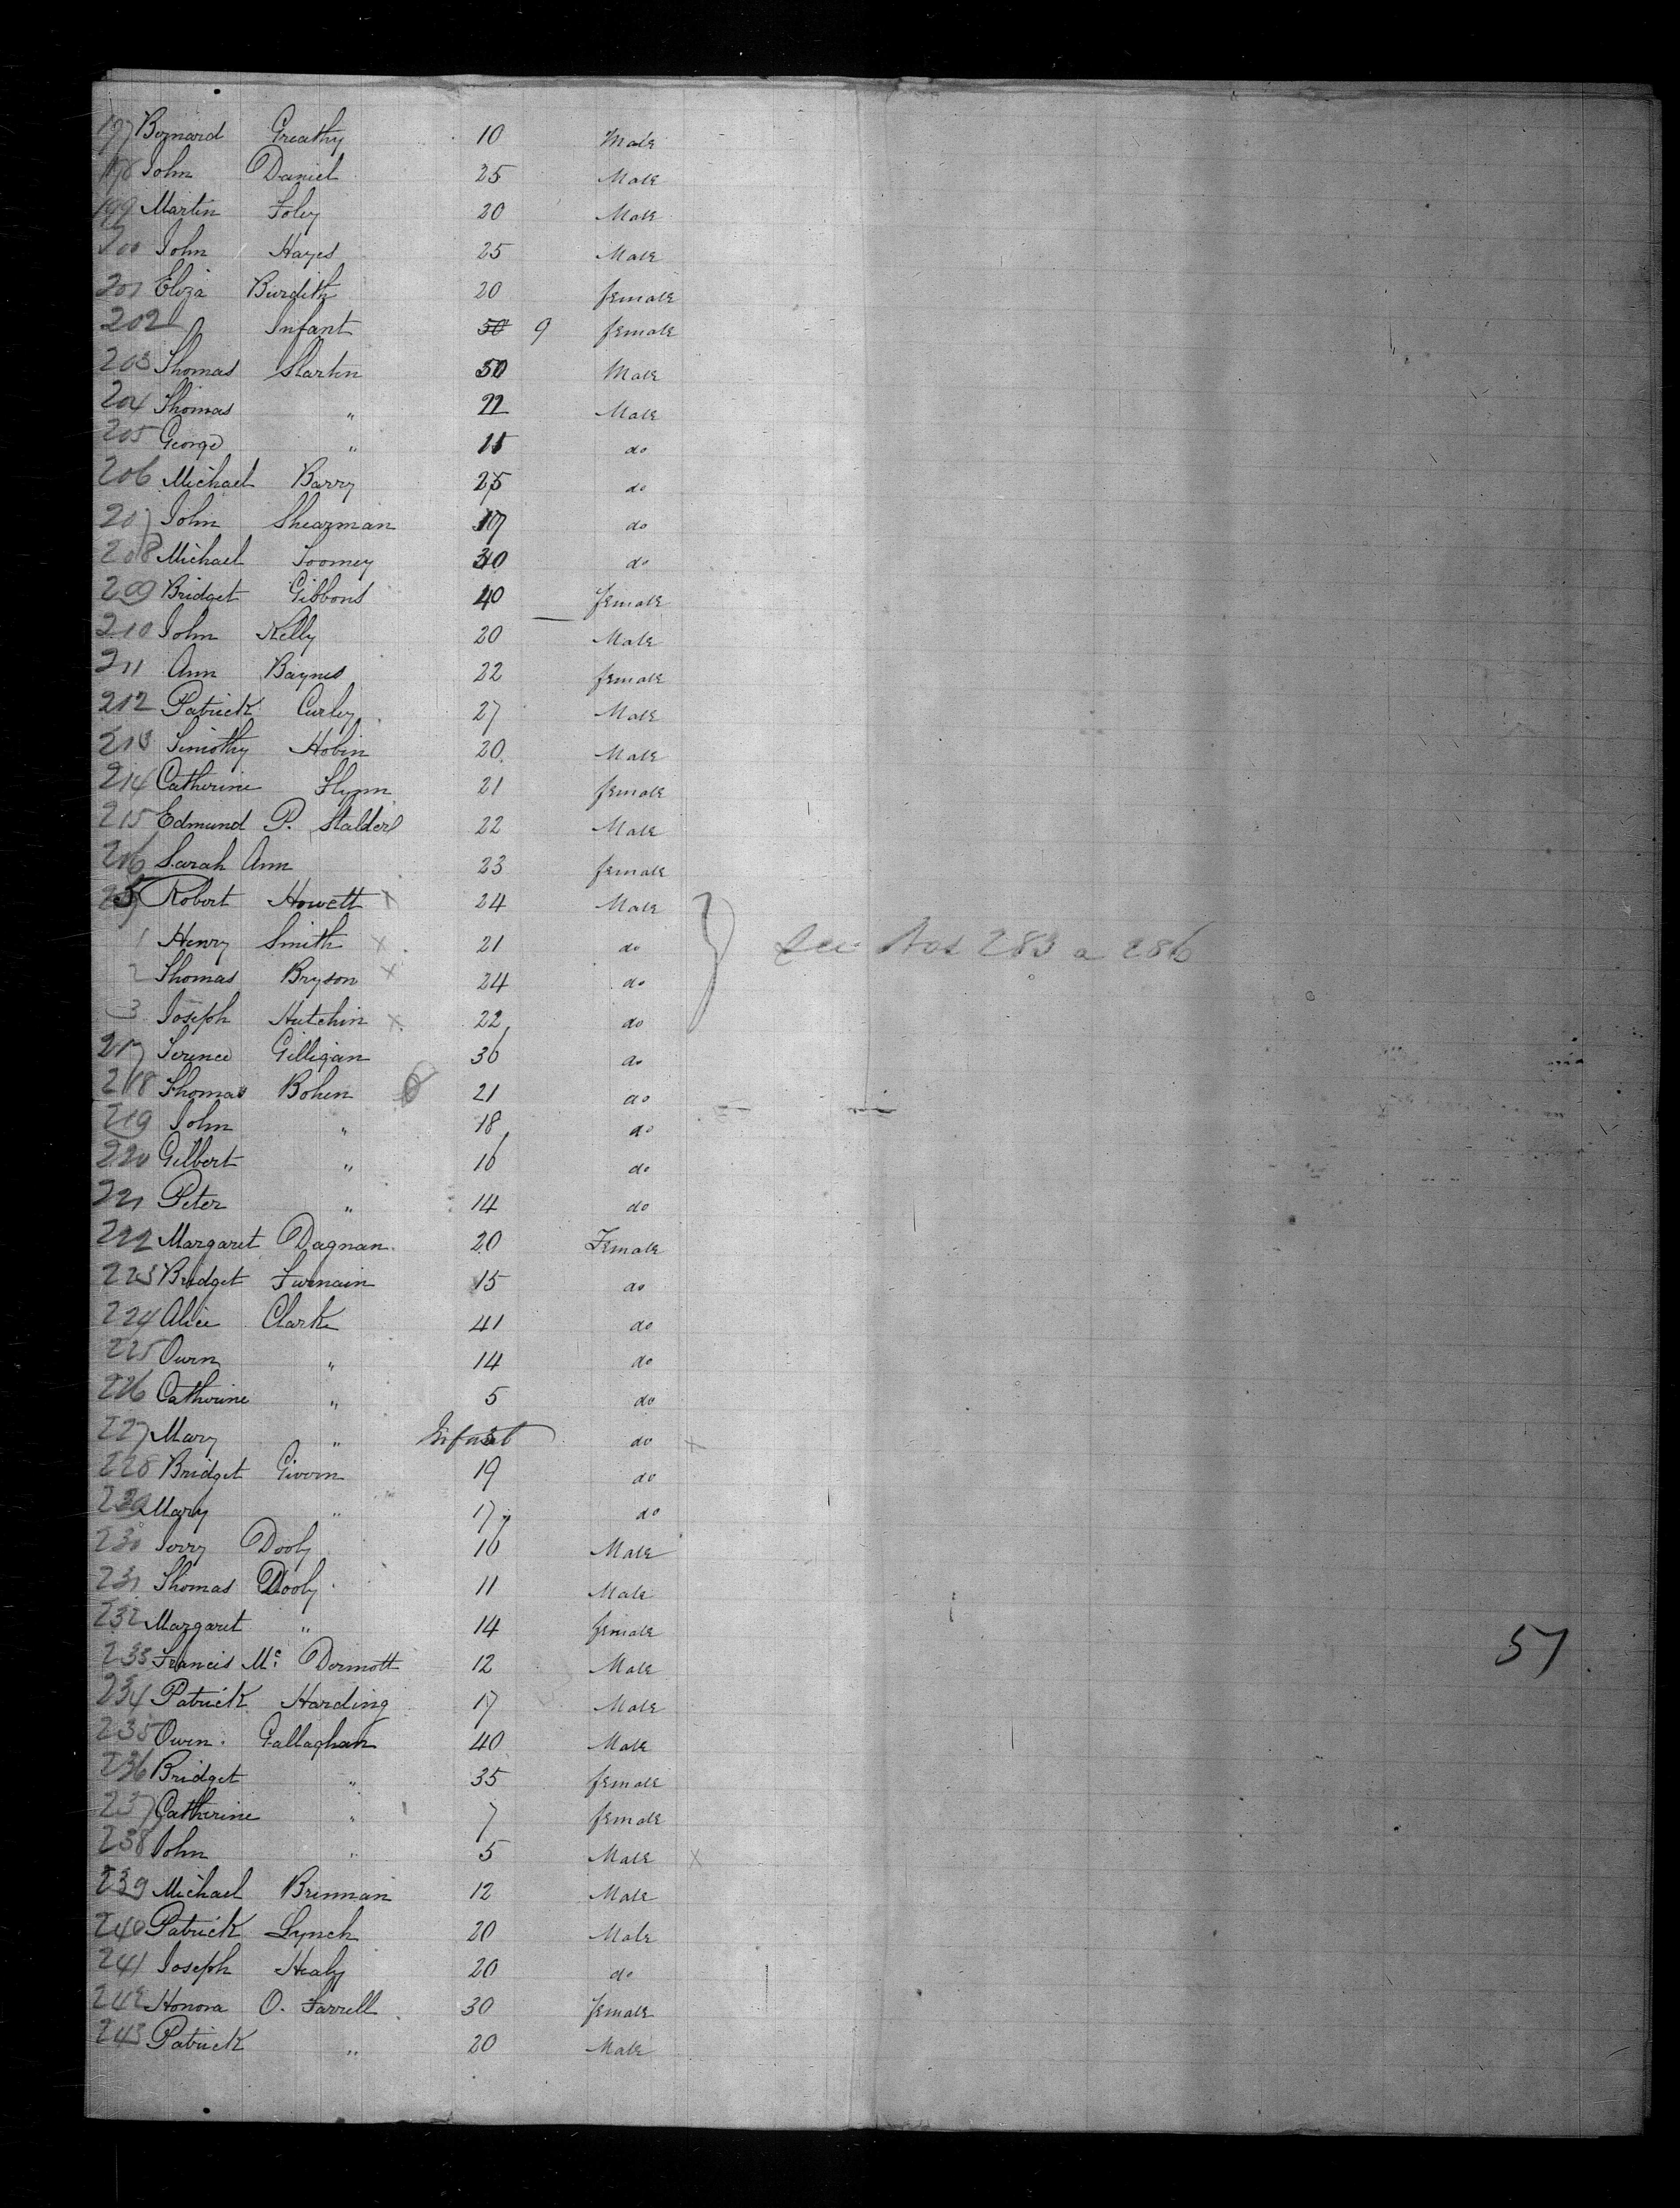 197 Bernard Greathy 10 Male
198 John Daniel 25 Male
199 Martin Foley 20 Male
200 John Hayes 25 Male
201 Eliza Burdith 20 female
202 " Infant 50 9 female
203 Thomas Slarten 50 Male
204 Thomas " 22 Male
205 George " 15 do
206 Michael Barry 25 do
207 John Shearman 17 do
208 Michael Toomey 30 do
209 Bridget Gibbons 40 female
210 John Kelly 20 Male
211 Ann Baynes 22 female
212 Patrick Curley 27 Male
213 Timothy Hobin 20 Male
214 Catherine Flynn 21 female
215 Edmund P. Stalder 22 Male
216 Sarah Ann 23 female
Robert Howett x 24 Male
1 Henry Smith x 21 do see Nos 283 a 286
2 Thomas Bryson x 24 do
3 Joseph Hutchin x 22 do
217 Terence Gilligan 36 do
218 Thomas Bohen 21 do
219 John " 18 do
220 Gilbert " 16 do
221 Peter " 14 do
222 Margaret Dagnan 20 Female
223 Bridget Furnain 15 do
224 Alice Clark 41 do
225 Owen " 14 do
226 Catherine " 5 do
227 Mary " Infant do x
228 Bridget Givern 19 do
229 Mary " 17 do
230 Jerry Dooly 16 Male
231 Thomas Dooly 11 Male
232 Margaret " 14 female
233 Francis Mc Dermott 12 Male
234 Patrick Harding 17 Male
235 Owen Gallaghan 40 Male
236 Bridget " 35 female
237 Catherine " 7 female
238 John " 5 Male x
239 Michael Brennan 12 Male
240 Patrick Lynch 20 Male
241 Joseph Healy 20 do
242 Honora O. Farrell 30 female
243 Patrick " 20 Male
57